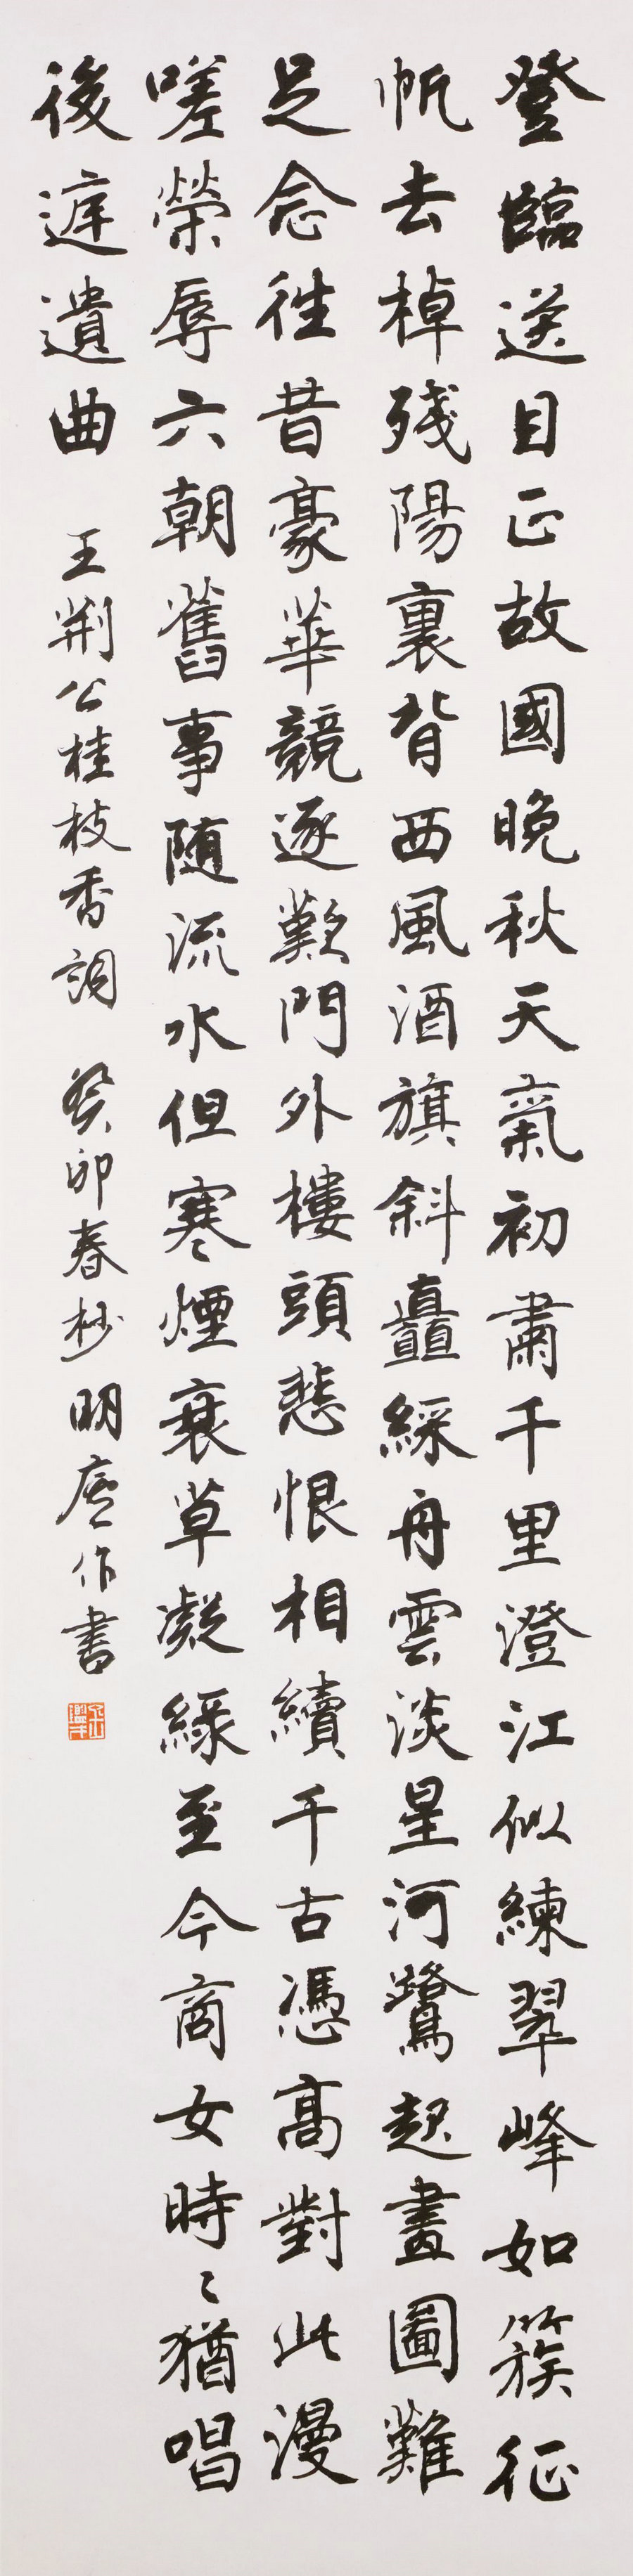 登臨送目正故國晚秋天氣初肅千里澄江似練翠峰如簇征
帆去棹殘陽裏背西風酒旗斜矗綵舟雲淡星河鷺起畫圖難
足念往昔豪華競逐歎門外樓頭悲恨相續千古憑高對此漫
嗟榮辱六朝舊事随流水但寒煙衰草凝綠至今商女時〻猶唱
後遅遺曲 王荆公桂枝香詞 癸卯春杪明廬作書